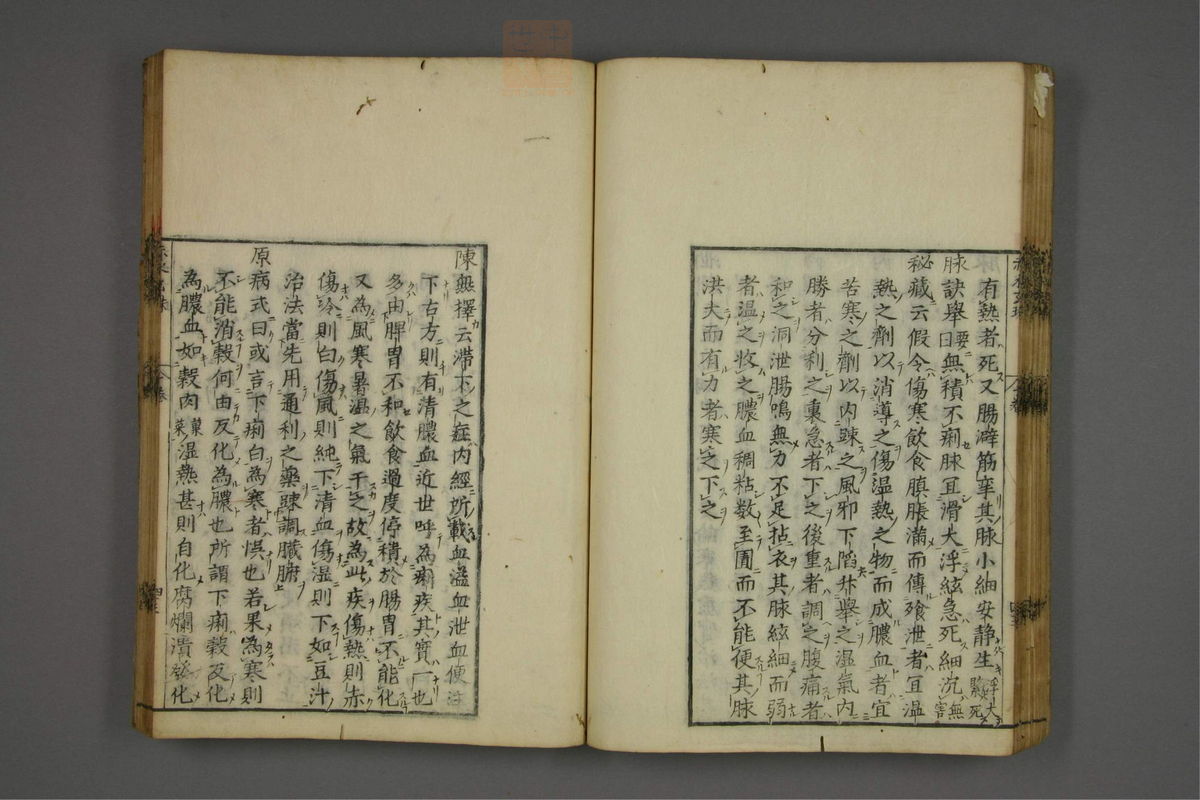 有熱者死又腸澼筋攣其脉小細安静生浮大緊死
脉訣舉要曰無積不痢脉宜滑大浮絃急死細沉無害
秘藏云假令傷寒飲食䐜脹滿而傳飧泄者宜温
熱之劑以消導之傷温熱之物而成膿血者宜
苦寒之劑以内踈之風邪下陷升舉之湿氣内
勝者分利之裏急者下之後重者調之腹痛者
和之洞泄腸鳴無力不足拈衣其脉絃細而弱
者温之收之膿血稠粘数至圊而不能便其脉
洪大而有力者寒之下之
陳無擇云滯下之症内經所載血溢血泄血便注
下古方則有清膿血近世呼為痢疾其實一也
多由脾胃不和飲食過度停積於腸胃不能化
又為風寒暑湿之氣干之故為此疾傷熱則赤
傷冷則白傷風則純下清血傷湿則下如豆汁
治法當先用通利之藥踈調臟腑
原病式曰或言下痢白為寒者悞也若果為寒則
不能消穀何由反化為膿也所謂下痢穀反化
為膿血如穀肉菓菜湿熱甚則自化腐爛潰發化